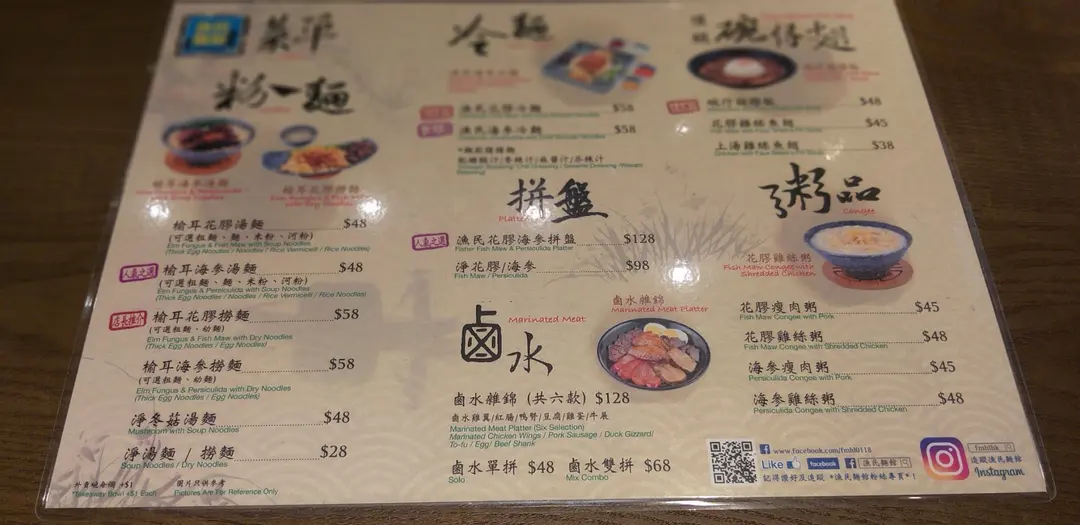 菜單
粉麵
榆耳花膠湯麵 $48
(可選粗麵、麵、米粉、河粉)
Elm Fungus & Fish Maw with Soup Noodles
(Thick Egg Noodles / Noodles / Rice Vermicelli / Rice Noodles)
人氣之選 榆耳海參湯麵 $48
(可選粗麵、麵、米粉、河粉)
Elm Fungus & Persiculida with Soup Noodles
(Thick Egg Noodles / Noodles / Rice Vermicelli / Rice Noodles)
店長推介 榆耳花膠撈麵 $58
(可選粗麵、幼麵)
Elm Fungus & Fish Maw with Dry Noodles
(Thick Egg Noodles / Egg Noodles)
榆耳海參撈麵 $58
(可選粗麵、幼麵)
Elm Fungus & Persiculida with Dry Noodles
(Thick Egg Noodles / Egg Noodles)
淨冬菇湯麵 $48
Mushroom with Soup Noodles
淨湯麵 / 撈麵 $28
Soup Noodles / Dry Noodles
外賣碗每個 +$1
*Takeaway Bowl +$1 Each
圖片只供參考
Pictures Are For Reference Only
冷麵
漁民花膠冷麵 $58
漁民海參冷麵 $58
拼盤
Platter
人氣之選 漁民花膠海參拼盤 $128
Fisher Fish Maw & Persiculida Platter
淨花膠/海參 $98
Fish Maw / Persiculida
鹵水
Marinated Meat
鹵水雜錦
Marinated Meat Platter
鹵水雜錦 (共六款) $128
鹵水雞翼/紅腸/鴨腎/豆腐/雞蛋/牛展
Marinated Meat Platter (Six Selection)
Marinated Chicken Wings / Pork Sausage / Duck Gizzard/
To-fu / Egg/ Beef Shank
鹵水單拼 $48 鹵水雙拼 $68
Solo Mix Combo
碗仔翅
$48
花膠雞絲魚翅 $45
上湯雞絲魚翅 $38
粥品
Congee
花膠雞絲粥
Fish Maw Congee with
Shredded Chicken
花膠瘦肉粥 $45
Fish Maw Congee with Pork
花膠雞絲粥 $48
Fish Maw Congee with Shredded Chicken
海參瘦肉粥 $45
Persiculida Congee with Pork
海參雞絲粥 $48
Persiculida Congee with Shredded Chicken
www.facebook.com/fmhl0118
Like facebook 漁民麵館
記得讚好及追蹤 "漁民麵館粉絲專頁"!
fmhlhk
追蹤漁民麵館
Instagram